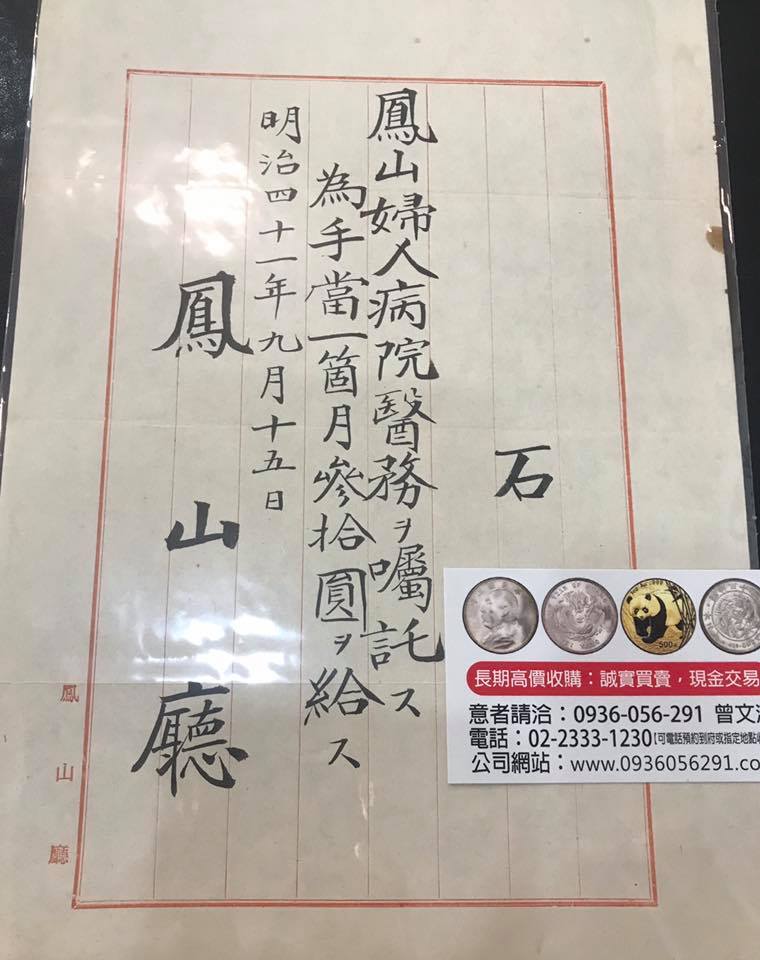 石
鳳山婦人病院醫務ヲ囑託ス
為手當一箇月參拾圓ヲ給ス
明治四十一年九月十五日
鳳山廳
鳳山廳
長期高價收購：誠實買賣，現金交易
意者請洽：0936-056-291 曾文
電話：02-2333-1230【可電話預約到府或指定地點收
公司網站：www.0936056291.co
500元